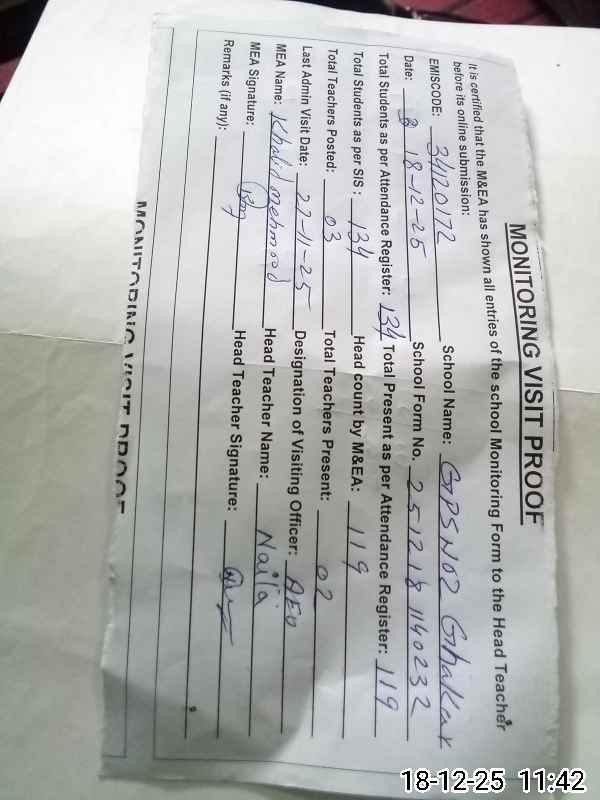 MONITORING VISIT PROOF
It is certified that the M&EA has shown all entries of the school Monitoring Form to the Head Teacher
before its online submission:
EMISCODE: 34120172 School Name: GPS NO2 Ghakar
Date: 18-12-25 School Form No. 251218 1140232
Total Students as per Attendance Register: 134 Total Present as per Attendance Register: 119
Total Students as per SIS : 134 Head count by M&EA: 119
Total Teachers Posted: 03 Total Teachers Present: 02
Last Admin Visit Date: 27-11-25 Designation of Visiting Officer: AEO
MEA Name: Khalid mehmood Head Teacher Name: Naila
MEA Signature: Head Teacher Signature:
Remarks (if any):
MONITORING VISIT PROOF
18-12-25 11:42